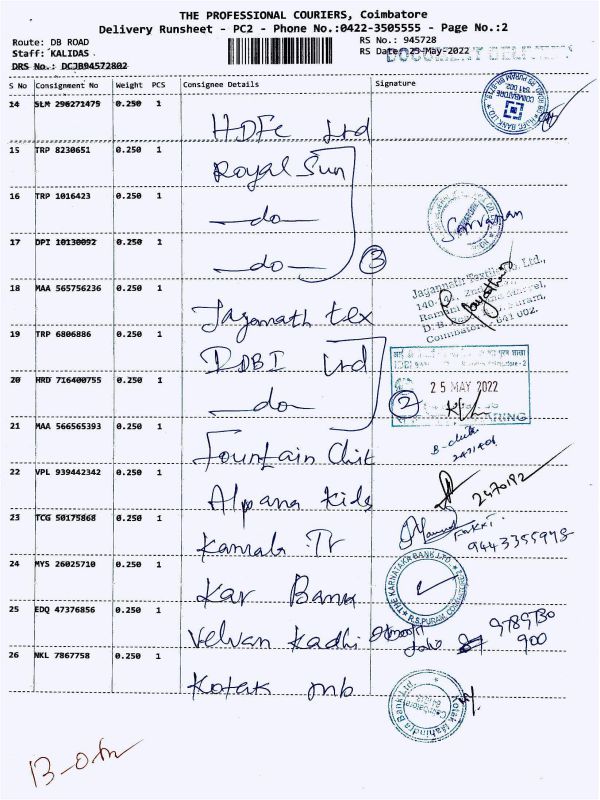 THE PROFESSIONAL COURIERS, Coimbatore
Delivery Runsheet - PC2 - Phone No.:0422-3505555 - Page No.:2
Route: DB ROAD
RS No.: 945728
Staff: KALIDAS
RS Date: 25-May-2022
DRS No.: DCJB94572802
DOCUMENT DELIVERY
S No Consignment No Weight PCS Consignee Details Signature
14 SLM 296271479 0.250 1
HDFC Ltd
15 TRP 8230651 0.250 1
Royal Sun
16 TRP 1016423 0.250 1
—do—
17 DPI 10130092 0.250 1
—do—
3
Saravanan
18 MAA 565756236 0.250 1
Jagannath tex
Jagannath Textile Co. Ltd.,
Coimbatore - 641 002.
19 TRP 6806886 0.250 1
IDBI Ltd
20 HRD 716400755 0.250 1
—do—
2
25 MAY 2022
21 MAA 566565393 0.250 1
Fountain Chit
22 VPL 939442342 0.250 1
Alpana Kids
2470192
23 TCG 50175868 0.250 1
Kamala Tr
24 MYS 26025710 0.250 1
Kar Bank
THE KARNATAKA BANK LTD.
R.S.PURAM, COIMBATORE
25 EDQ 47376856 0.250 1
Velvan Kadhi
900
26 NKL 7867758 0.250 1
Kotak mb
Kotak Mahindra Bank Ltd
Coimbatore